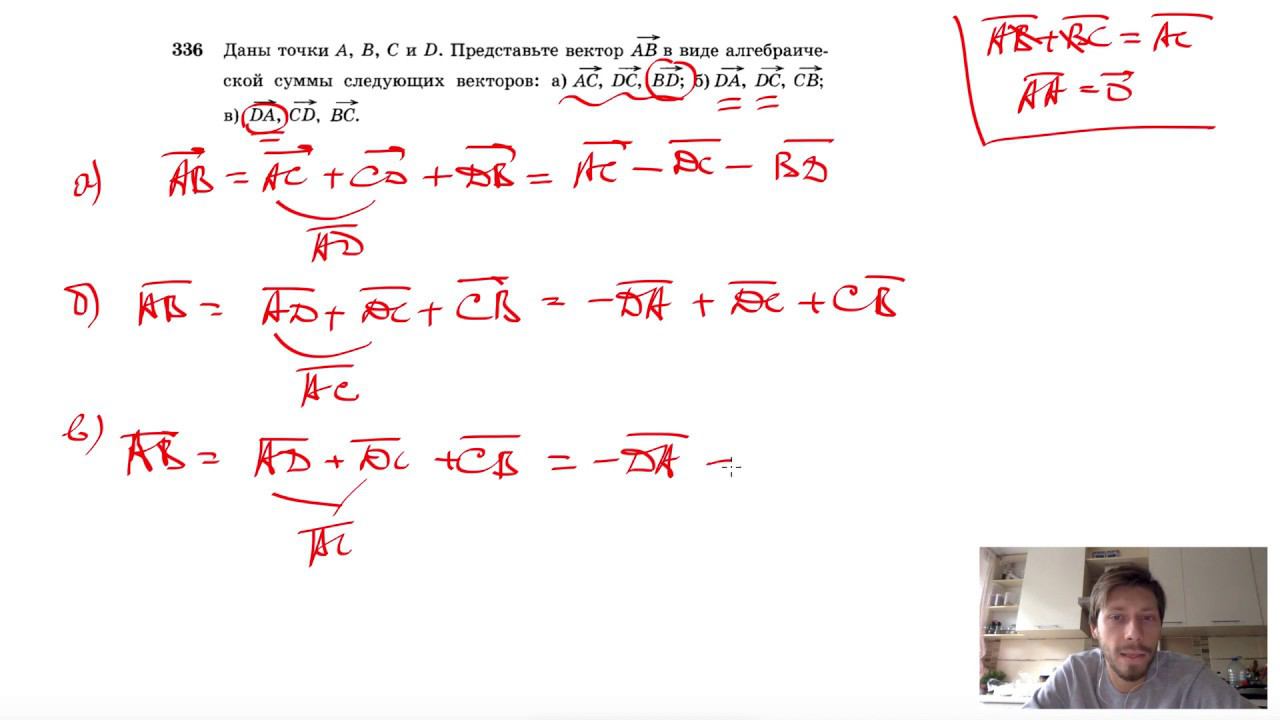 336 Даны точки A, B, C и D. Представьте вектор AB⃗ в виде алгебраиче-
ской суммы следующих векторов: а) AC⃗, DC⃗, BD⃗; б) DA⃗, DC⃗, CB⃗;
в) DA⃗, CD⃗, BC⃗.
AB + BC = AC
AA = 0⃗
а) AB⃗ = AC⃗ + CD⃗ + DB⃗ = AC − DC − BD
AD
б) AB = AD + DC + CB = −DA + DC + CB
AC
в) AB = AD + DC + CB = −DA −
AC